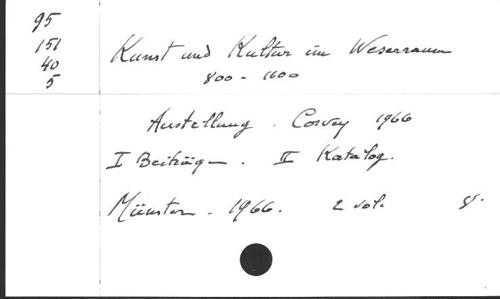 95
151
40
5
Kunst und Kultur im Weserraum
800 - 1600
Austellung . Corvey 1966
I Beiträgen . II Katalog.
Münster . 1966 . 2 vol. 8°.